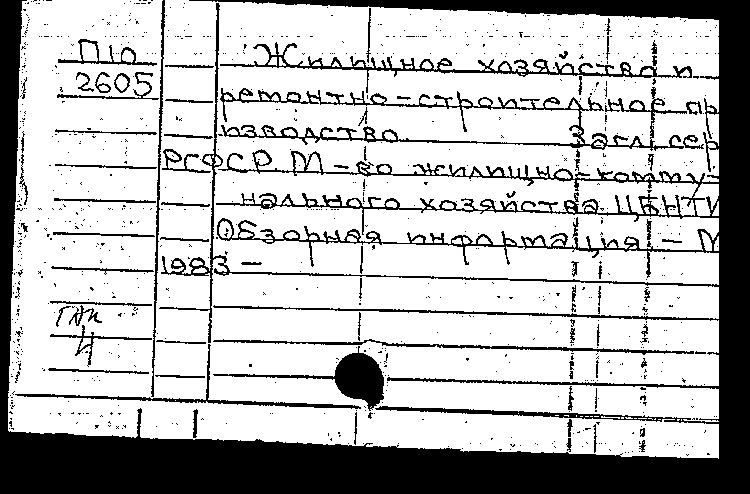 П10
2605
Жилищное хозяйство и
ремонтно-строительное пр
изводство. Загл. сер
РСФСР. М-во жилищно-комму-
нального хозяйства. ЦБНТИ
Обзорная информация. – М
1983 –
4